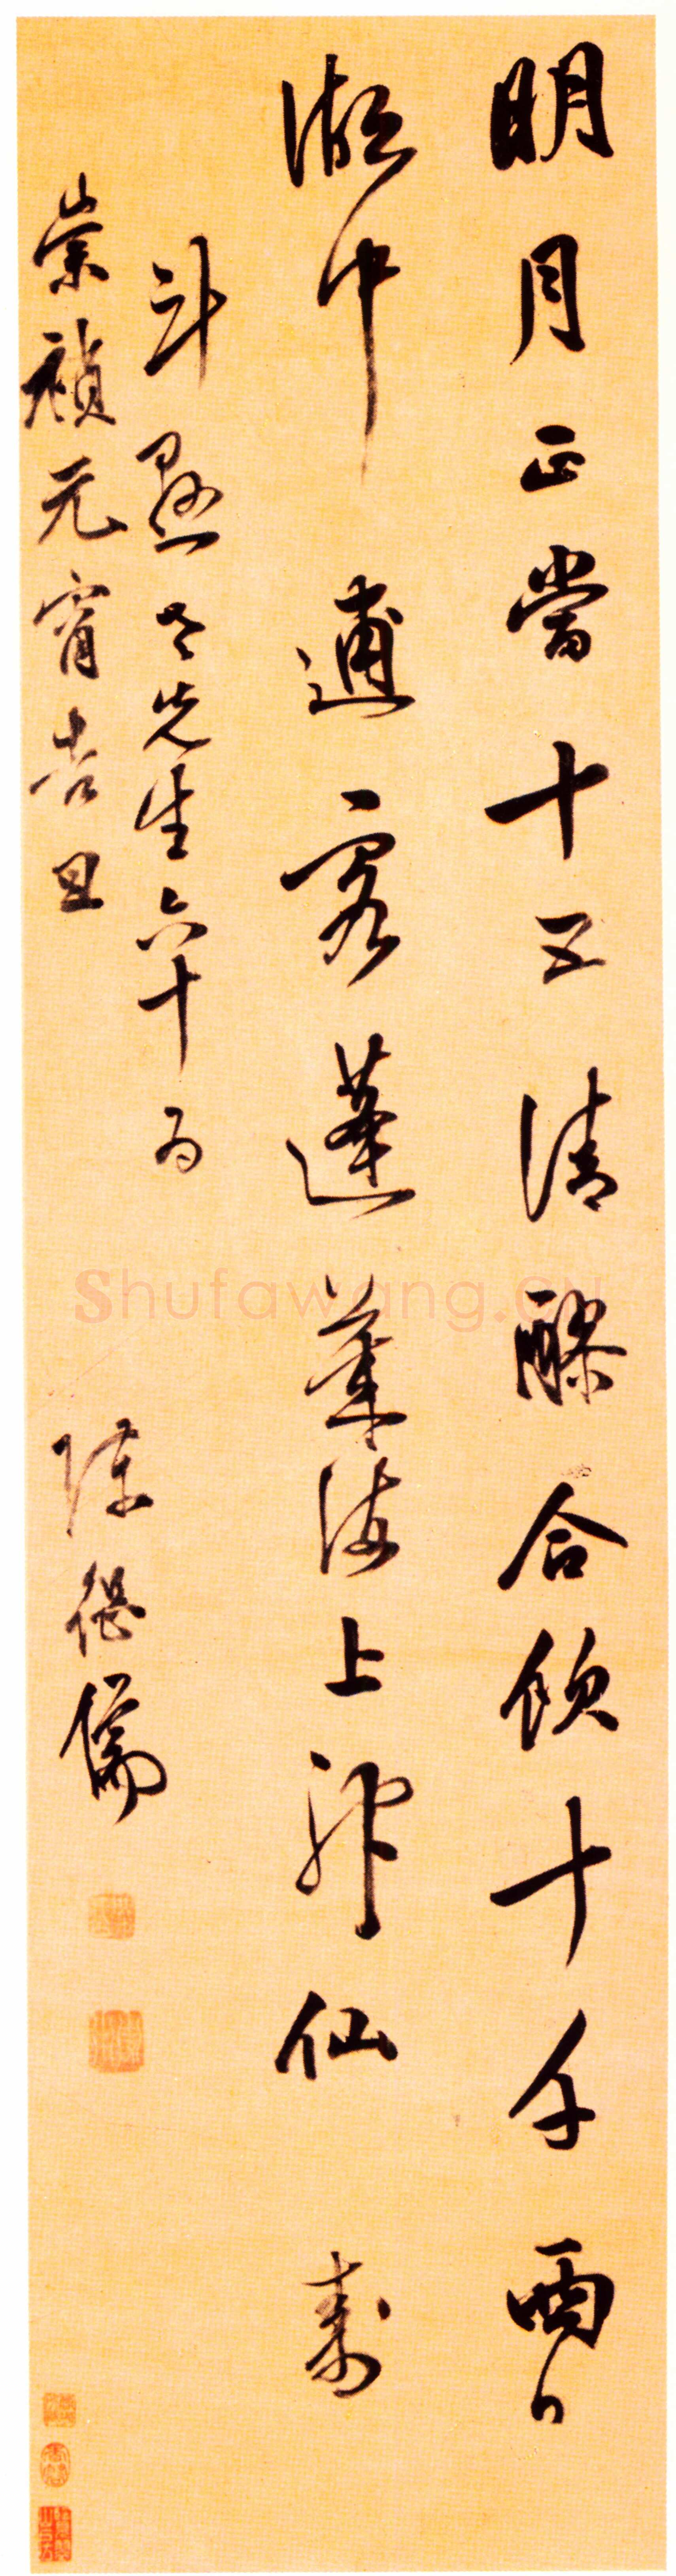 明月正當十五清醪合飲十千西
湖中逋客蓬萊海上神仙 壽
斗 老先生六十 為
崇禎元宵吉旦 陳繼儒
Shufawang.cn